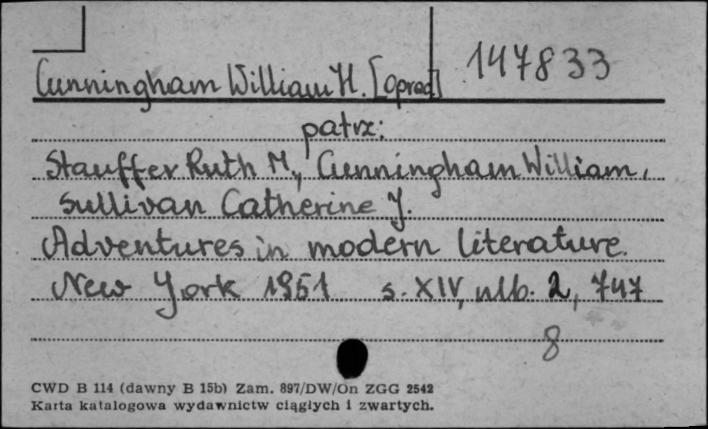 Cunningham William H. [Oprac] 147833
patrz:
Stauffer Ruth M., Cunningham William,
Sullivan Catherine J.
Adventures in modern literature.
New York 1951 s. XIV, nlb. 2, 747
8
CWD B 114 (dawny B 15b) Zam. 897/DW/On ZGG 2542
Karta katalogowa wydawnictw ciągłych i zwartych.